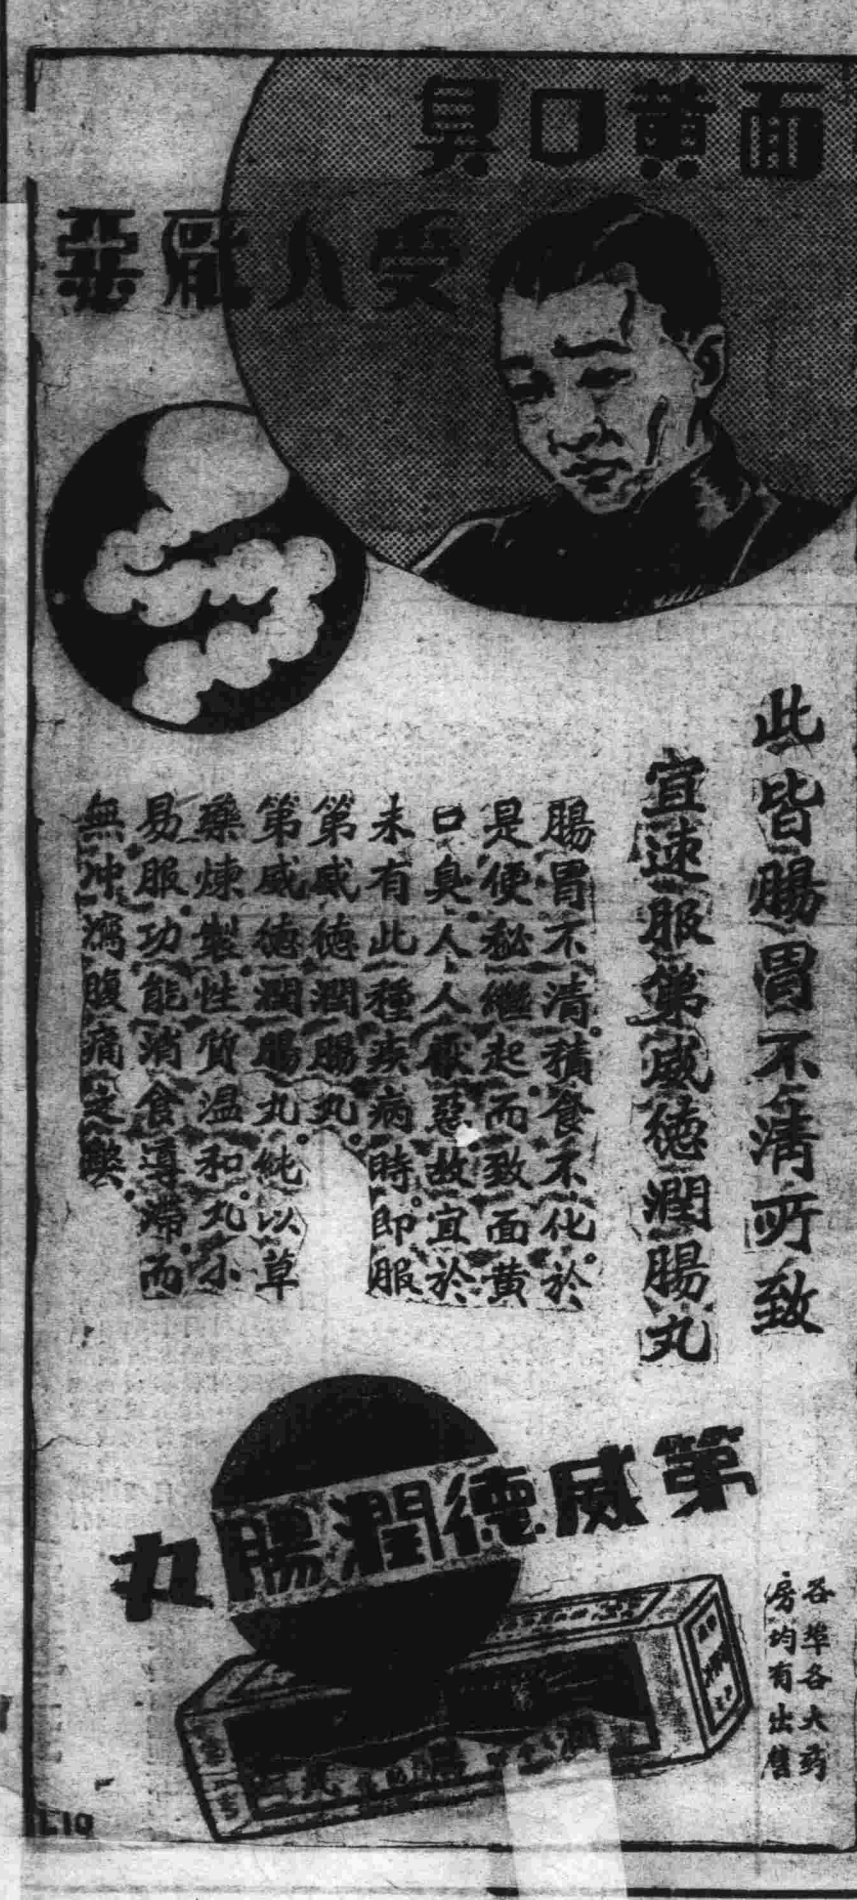 面黃口臭
受人厭惡
此皆腸胃不清所致
宜速服第威德潤腸丸
腸胃不清。積食不化。於
是便秘繼起。而致面黃
口臭。人人厭惡。故宜於
未有此種疾病時。即服
第威德潤腸丸。
第威德潤腸丸。純以草
藥煉製。性質溫和。丸小
易服。功能消食導滯。而
無沖瀉腹痛之弊。
第威德潤腸丸
各埠各大药
房均有出售
L10